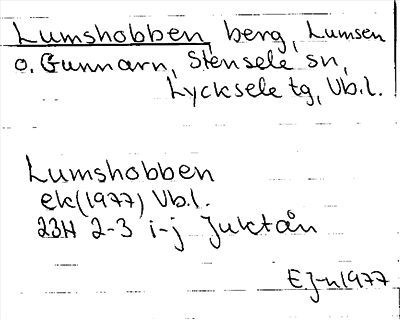 Lumshobben, berg, Lumsen
o. Gunnarn, Stensele sn,
Lycksele tg, Vb.l.
Lumshobben
ek(1977) Vb.l.
23H 2-3 i-j Juktån
E.J-n 1977